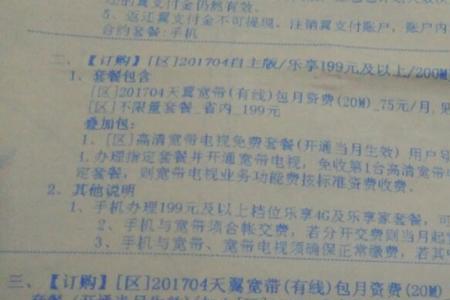 返的翼支付金仍然有效。
5、返还翼支付金不可提现,注销翼支付账户,账户内
合约套餐:手机
二、【订购】[区]201704自主版/乐享199元及以上/200M
1、套餐包含
[区]201704天翼宽带(有线)包月资费(20M)_75元/月,
[区]不限量套餐_省内_199元
叠加包:
1、[区]高清宽带电视免费套餐(开通当月生效) 用户
1.办理指定套餐并开通宽带电视,免收第1台高清宽带
定套餐,则宽带电视业务功能费按标准资费收费。
2、其他说明
1、手机办理199元及以上档位乐享4G及乐享家套餐,可
2、手机与宽带须合帐交费,若分开交费则当月起
3、手机与宽带、宽带电视须确保正常缴费,若其
三、【订购】[区]201704天翼宽带(有线)包月资费(20M)